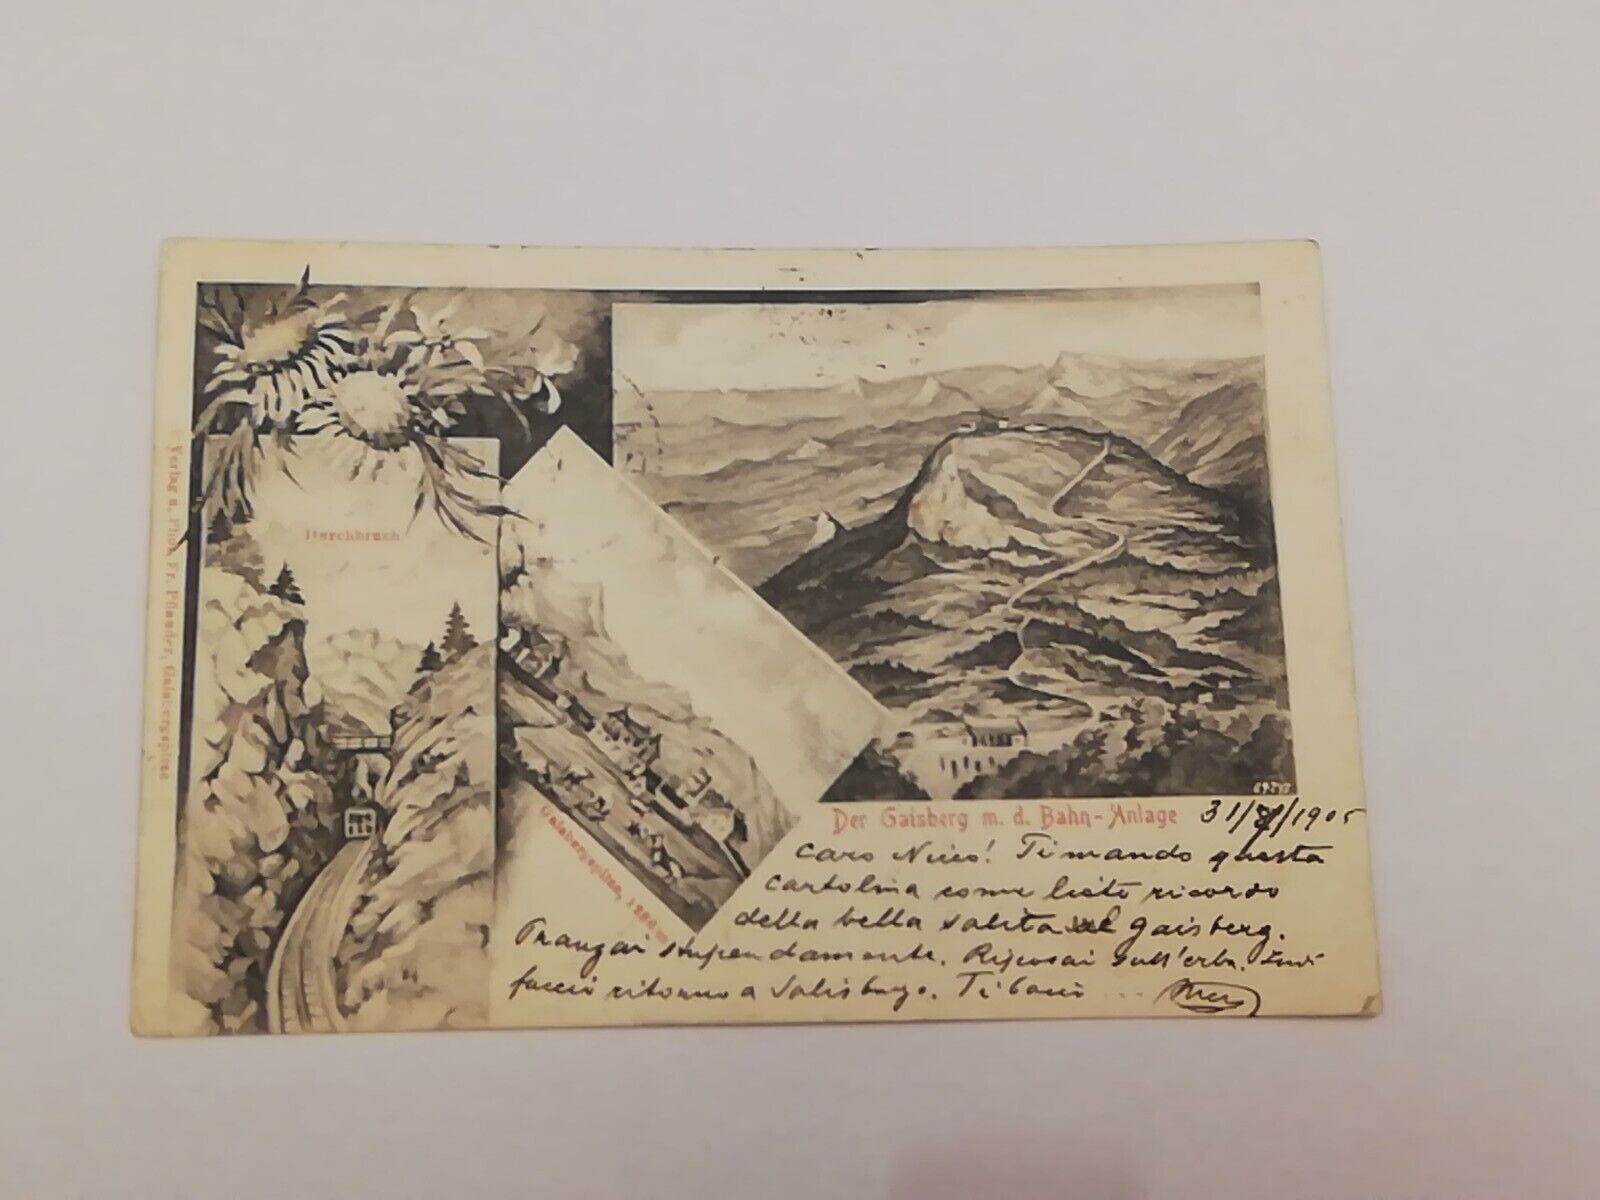 Verlag u. Phot. Fr. Pflauder, Gaisbergspitze
Durchbruch
Gaisbergspitze, 1286 m
Der Gaisberg m. d. Bahn-Anlage
31/7/1905
Caro Nico! Ti mando questa
cartolina come lieto ricordo
della bella salita al Gaisberg.
Pranzai stupendamente. Riposai sull'erba.
faccio ritorno a Salisburgo. Ti bacio ...